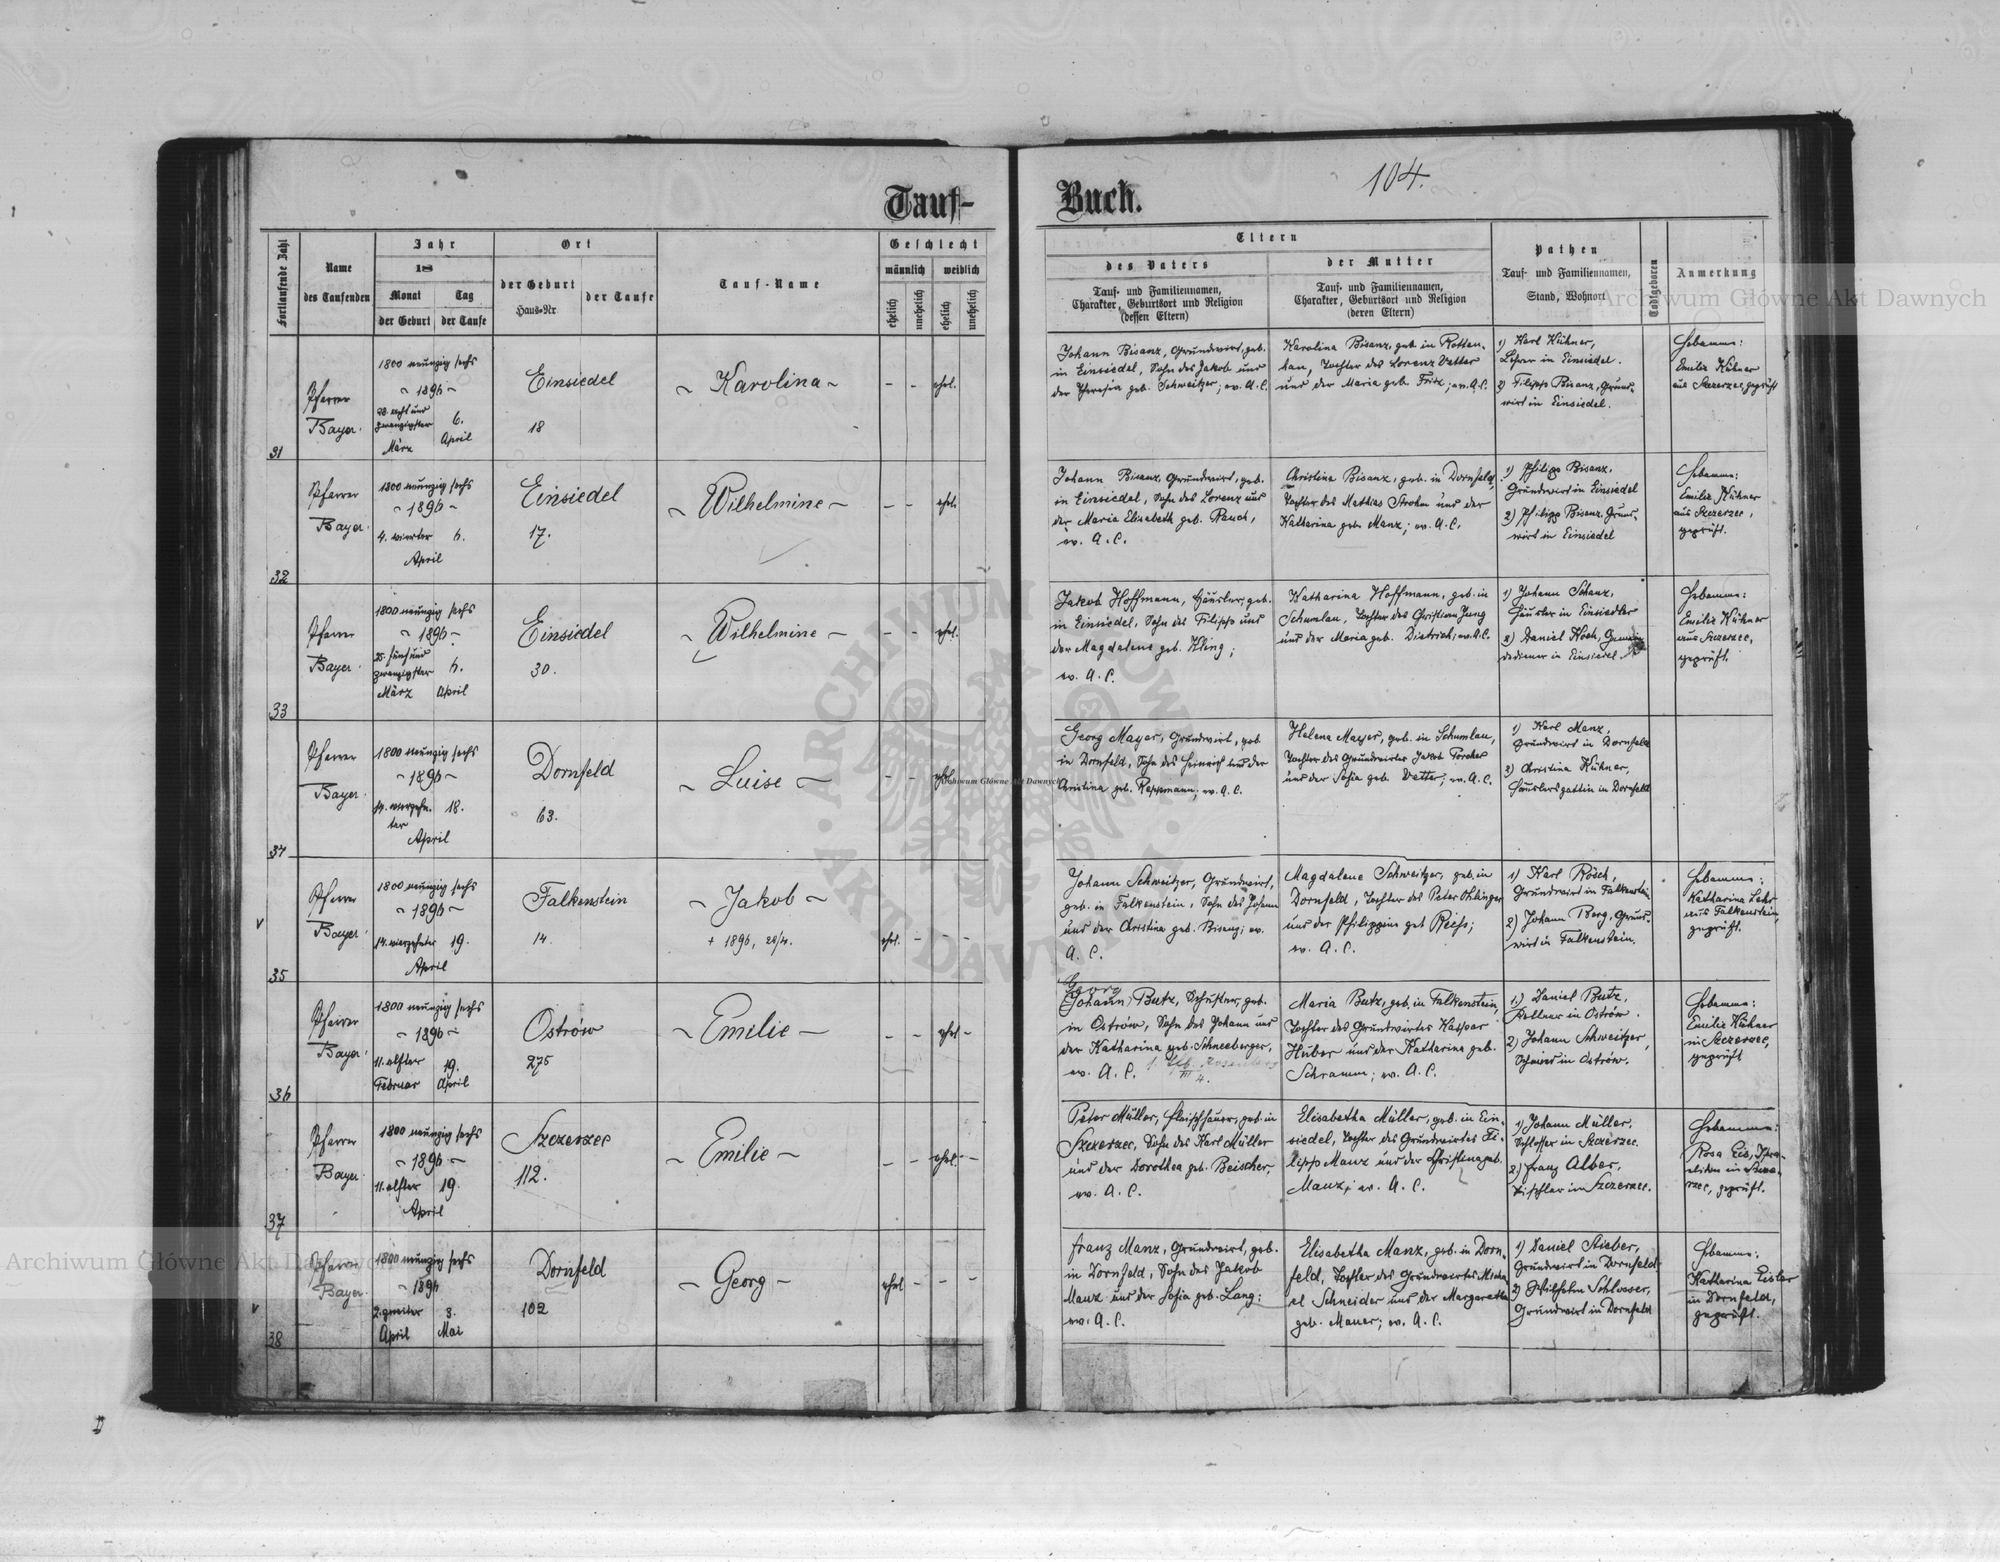 104.
Tauf-Buch.
Fortlaufende Zahl
Name
des Taufenden
Jahr
18
Monat
der Geburt
Tag
der Taufe
Ort
der Geburt
Haus-Nr.
der Taufe
Tauf-Name
Geschlecht
männlich
weiblich
ehelich
unehelich
ehelich
unehelich
Eltern
des Vaters
Tauf- und Familiennamen,
Charakter, Geburtsort und Religion
(dessen Eltern)
der Mutter
Tauf- und Familiennamen,
Charakter, Geburtsort und Religion
(deren Eltern)
Pathen
Tauf- und Familiennamen,
Stand, Wohnort
Todtgeboren
Anmerkung
31
Pfarrer
Bayer.
1800 neunzig sechs
~ 1896 ~
28. acht und
zwanzigster
März
6.
April
Einsiedel
18
~ Karolina ~
- - ehel.
Johann Bisanz, Grundwirt, geb.
in Einsiedel, Sohn des Jakob und
der Theresia geb. Schweitzer; ev. A. C.
Karolina Bisanz, geb. in Rotten-
han, Tochter des Lorenz Vetter
und der Maria geb. ; ev. A. C.
1) Karl Kühner,
Lehrer in Einsiedel.
2) Filipp Bisanz, Grund-
wirt in Einsiedel.
Hebamme:
Emilie Kühner
aus Szczerzec, geprüft
32
Pfarrer
Bayer.
1800 neunzig sechs
~ 1896 ~
4. vierter
April
6.
Einsiedel
17.
~ Wilhelmine ~
- - ehel.
Johann Bisanz, Grundwirt, geb.
in Einsiedel, Sohn des Lorenz und
der Maria Elisabeth geb. Rauch,
ev. A. C.
Christina Bisanz, geb. in Dornfeld,
Tochter des Mathias Strohm und der
Katharina geb. Manz; ev. A. C.
1) Philipp Bisanz,
Grundwirt in Einsiedel
2) Philipp Bisanz, Grund-
wirt in Einsiedel
Hebamme:
Emilie Kühner
aus Szczerzec,
geprüft.
33
Pfarrer
Bayer.
1800 neunzig sechs
~ 1896 ~
25. fünf und
zwanzigster
März
6.
April
Einsiedel
30.
~ Wilhelmine ~
- - ehel.
Jakob Hoffmann, Häusler, geb.
in Einsiedel, Sohn des Filipp und
der Magdalena geb. Kling;
ev. A. C.
Katharina Hoffmann, geb. in
Schumlau, Tochter des Christian Jung
und der Maria geb. Dietrich; ev. A. C.
1) Johann Schanz,
Häusler in Einsiedler
2) Daniel Koch, Gemein-
dediener in Einsiedel
Hebamme:
Emilie Kühner
aus Szczerzec,
geprüft.
34
Pfarrer
Bayer.
1800 neunzig sechs
~ 1896 ~
14. vierzehn-
ter
April
18.
Dornfeld
63.
~ Luise ~
- - ehel.
Georg Mayer, Grundwirt, geb.
in Dornfeld, Sohn des Heinrich und der
Christina geb. Reppmann; ev. A. C.
Helena Mayer, geb. in Schumlau,
Tochter des Grundwirtes Jakob Porcher
und der Sofia geb. Vetter; ev. A. C.
1) Karl Manz,
Grundwirt in Dornfeld
2) Christina Kühner,
Häuslersgattin in Dornfeld
35
Pfarrer
Bayer.
1800 neunzig sechs
~ 1896 ~
14. vierzehnter
April
19.
Falkenstein
14.
~ Jakob ~
+ 1896, 26/4.
ehel. - - -
Johann Schweitzer, Grundwirt,
geb. in Falkenstein, Sohn des Johann
und der Christina geb. Bisanz; ev.
A. C.
Magdalena Schweitzer, geb. in
Dornfeld, Tochter des Peter Ohlinger
und der Philippina geb. Reiss;
ev. A. C.
1) Karl Rösch,
Grundwirt in Falkenstein
2) Johann Berg, Grund-
wirt in Falkenstein.
Hebamme:
Katharina Lehr
aus Falkenstein,
geprüft.
36
Pfarrer
Bayer.
1800 neunzig sechs
~ 1896 ~
11. elfter
Februar
19.
April
Ostrów
275
~ Emilie ~
- - ehel. -
Georg
(Johann) Butz, Schuster, geb.
in Ostrów, Sohn des Johann und
der Katharina geb. Schneeberger,
ev. A. C.
Maria Butz, geb. in Falkenstein,
Tochter des Grundwirtes Kaspar
Huber und der Katharina geb.
Schramm; ev. A. C.
1.) Daniel Butz,
Kellner in Ostrów.
2) Johann Schweitzer,
Schmied in Ostrów.
Hebamme:
Emilie Kühner
in Szczerzec,
geprüft
37
Pfarrer
Bayer.
1800 neunzig sechs
~ 1896 ~
11. elfter
April
19.
Szczerzec
112.
~ Emilie ~
- - ehel. -
Peter Müller, Fleischhauer, geb. in
Szczerzec, Sohn des Karl Müller
und der Dorothea geb. Beischer,
ev. A. C.
Elisabetha Müller, geb. in Ein-
siedel, Tochter des Grundwirtes Fi-
lipp Manz und der Christina geb.
Manz; ev. A. C.
1) Johann Müller,
Schlosser in Szczerzec.
2) Franz Alber,
Tischler in Szczerzec.
Hebamme:
Rosa Eis, Isra-
elitin in Szcze-
rzec, geprüft.
38
Pfarrer
Bayer.
1800 neunzig sechs
~ 1896
2. zweiter
April
3.
Mai
Dornfeld
102
~ Georg ~
ehel - - -
Franz Manz, Grundwirt, geb.
in Dornfeld, Sohn des Jakob
Manz und der Sofia geb. Lang;
ev. A. C.
Elisabetha Manz, geb. in Dorn-
feld, Tochter des Grundwirtes Micha-
el Schneider und der Margaretha
geb. Mauer; ev. A. C.
1) Daniel Stieber,
Grundwirt in Dornfeld
2) Wilhelm Schlosser,
Grundwirt in Dornfeld
Hebamme:
Katharina Eisler
in Dornfeld,
geprüft.
Archiwum Główne Akt Dawnych
Archiwum Główne Akt Dawnych
Archiwum Główne Akt Dawnych
ARCHIWUM GŁÓWNE AKT DAWNYCH